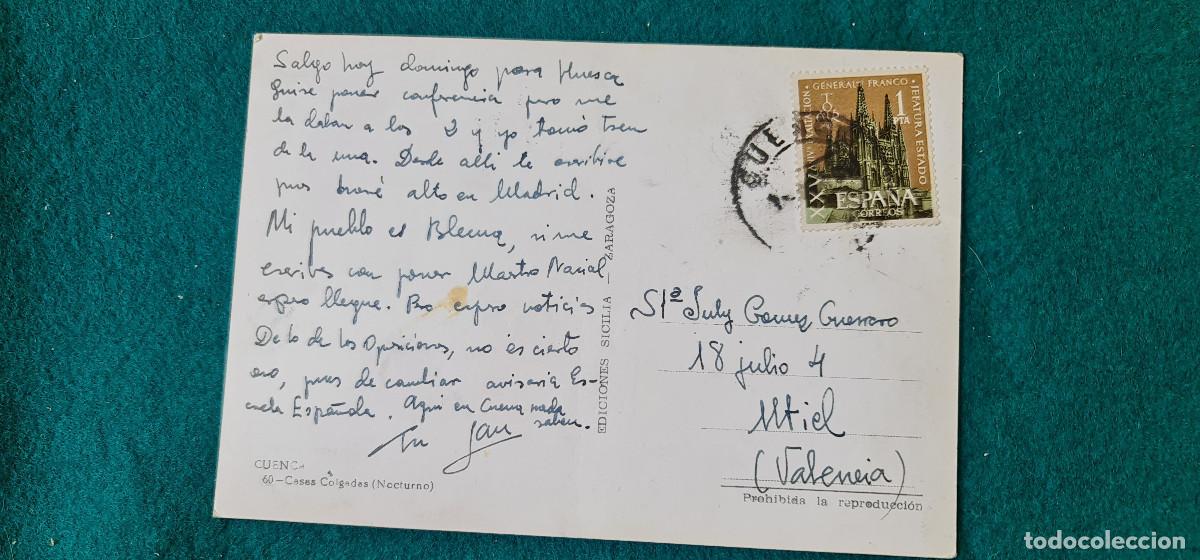 Salgo hoy domingo para Huesca
Quise poner conferencia pero me
la daban a las 2 y yo tomo tren
de la una. Desde allí te escribiré
pues haré alto en Madrid.
Mi pueblo es Blecua, si me
escribes con poner Maestro Nacional
espero llegue. Pero espero noticias
De lo de las Oposiciones, no es cierto
eso, pues de cambiar avisaría Es-
cuela Española. Aquí en Cuenca nada
saben.
Tu
CUENCA
60—Casas Colgadas (Nocturno)
EDICIONES SICILIA — ZARAGOZA
XXV ANIVº EXALTACION · GENERAL FRANCO · JEFATURA ESTADO
1
PTA
ESPAÑA
CORREOS
CUEN
Stª July Gomez Guerrero
18 julio 4
Utiel
(Valencia)
Prohibida la reproducción
todocoleccion